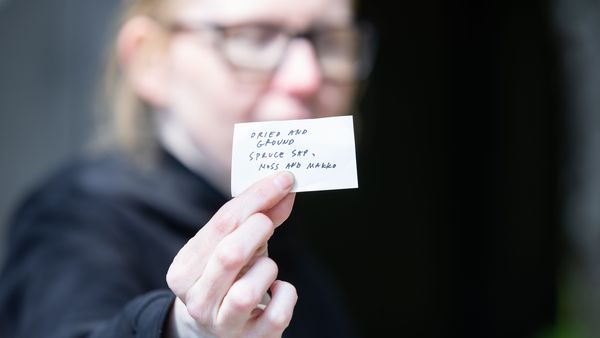 DRIED AND
GROUND
SPRUCE SAP,
MOSS AND MAKKO